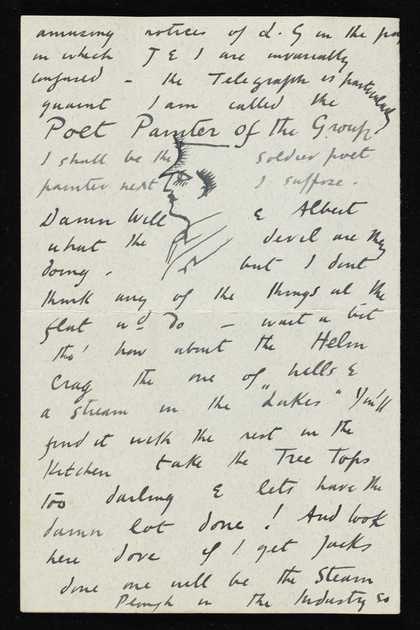 amusing notices of L. G in the
in which J & I are invariably
confused – the Telegraph is particularly
quaint I am called the
Poet Painter of the Group
I shall be the soldier poet
painter next I suppose.
Damn Will & Albert
what the devil are they
doing. but I dont
think any of the things at the
flat wd do – wait a bit
tho' how about the Helm
Crag the one of "hills &
a stream in the Lakes" You'll
find it with the rest in the
Kitchen take the Tree Tops
too darling & lets have the
damn lot done! And look
here dove if I get Jacks
done one will be the Steam
Plough in the Industry so